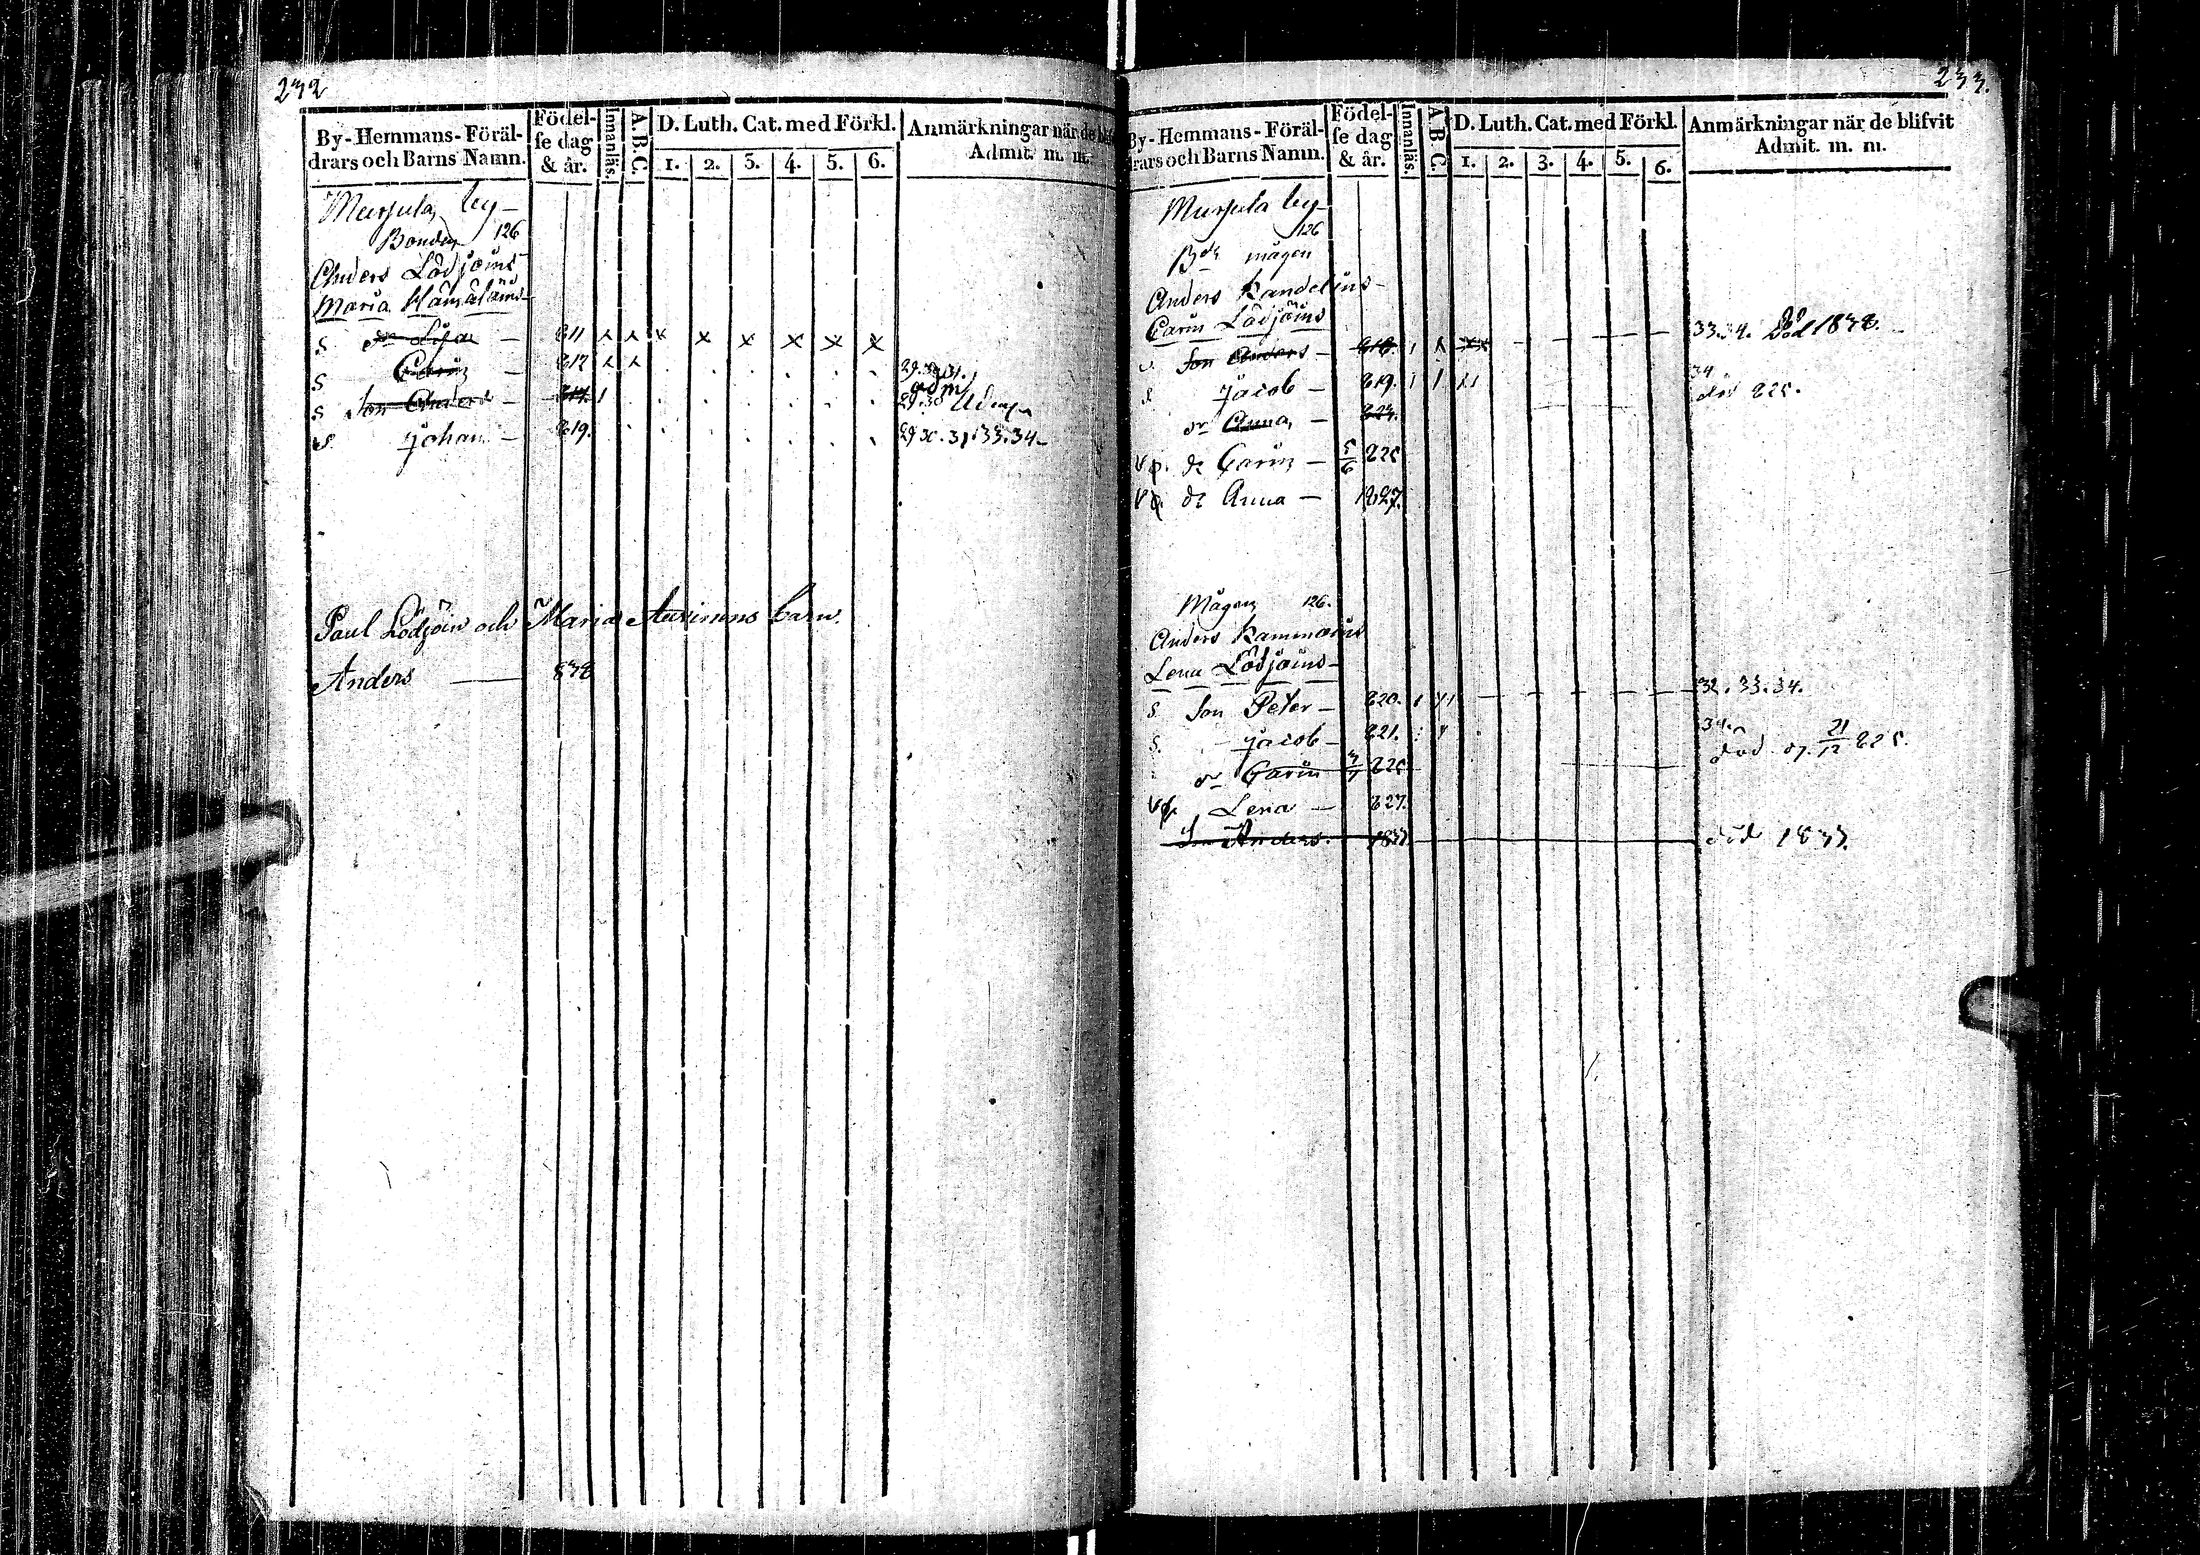 232
By-Hemmans-Föräl-
drars och Barns Namn.
Födel-
se dag
& år.
Innanläs.
A.B.C.
D. Luth. Cat. med Förkl.
1. 2. 3. 4. 5. 6.
Anmärkningar när de
Admit. m. m.
Mursula by
Bonden 126
Anders Lödjöins
Maria Hämäläins
S dr Lisa — 811 x x x x x x x x
S Carin — 812 x x
29.30.31.
adm
S Son Anders — 814.
29.30
S. Johan — 819.
29 30. 31. 33. 34
Paul Lödjöin och Maria barn.
Anders — 838
233.
By-Hemmans-Föräl-
drars och Barns Namn.
Födel-
se dag
& år.
Innanläs.
A.B.C.
D. Luth. Cat. med Förkl.
1. 2. 3. 4. 5. 6.
Anmärkningar när de blifvit
Admit. m. m.
Mursula by
126
Bdr mågen
Anders Kandelins
Carin Lödjöins
Son Anders — 818.
33.34. död 1838.
S Jacob — 819.
34
dr Anna — 823.
död 825.
vp. dr Carin — 5/6 825
vp. dr Anna — 1827.
Mågen 126.
Anders Kammoins
Lena Lödjöins
S. Son Peter — 820.
32. 33. 34.
S. Jacob — 821.
34.
dr Carin 825
död 21/12 825.
vp. Lena — 827.
Son Anders. 1837
död 1837.